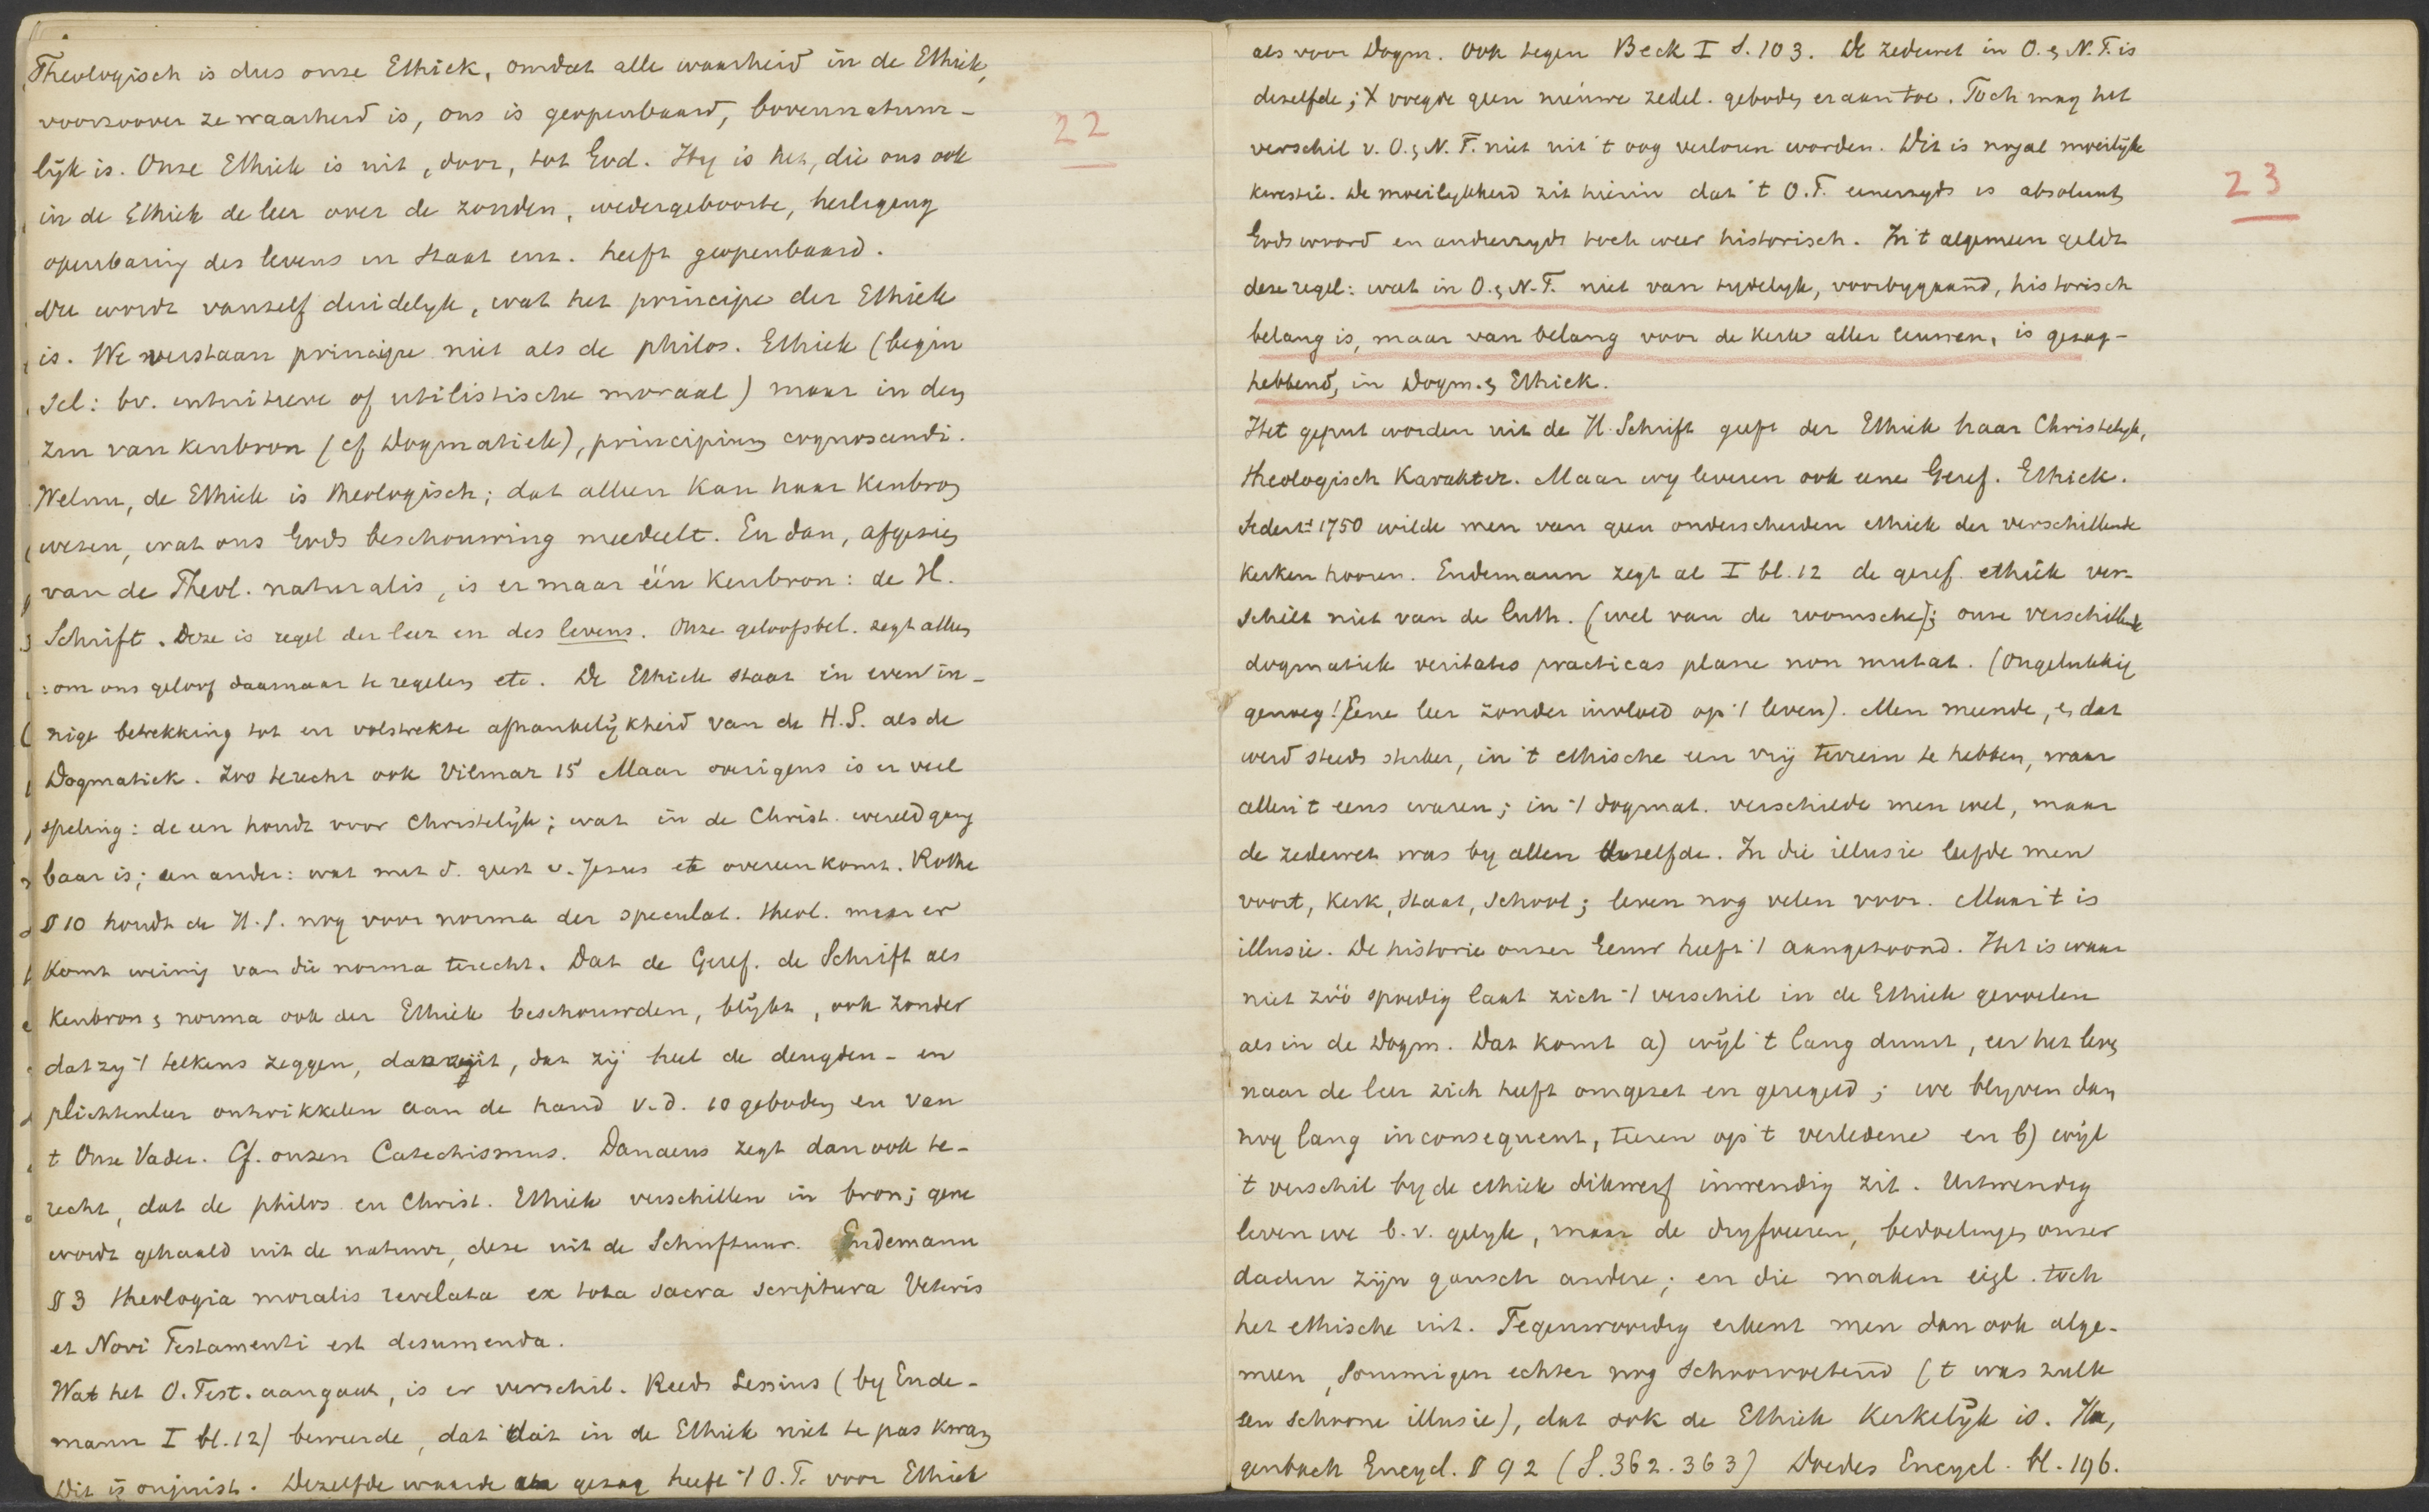 Theologisch is dus onze Ethiek, omdat alle waarheid in de Ethiek,
voorzoover ze waarheid is, ons is geopenbaard, bovennatuur-
lijk is. Onze Ethiek is uit, door, tot God. Hij is het, die ons ook
in de Ethiek de leer over de zonden, wedergeboorte, heiliging
openbaring des levens in staat enz. heeft geopenbaard.
Nu wordt vanzelf duidelyk, wat het principe der Ethiek
is. We verstaan principe niet als de philos. Ethiek (begin
sel: bv. intuitieve of utilistische moraal) maar in den
zin van kenbron (cf Dogmatiek), principium cognoscendi.
Welnu, de Ethiek is theologisch; dat alleen kan haar kenbron
wezen, wat ons Gods beschouwing meedeelt. En dan, afgezien
van de Theol. naturalis, is er maar één kenbron: de H.
Schrift. Deze is regel der leer en des levens. Onze geloofsbel. zegt alleen
: om ons geloof daarnaar te regelen etc. De Ethiek staat in even in-
nige betrekking tot en volstrekte afhankelijkheid van de H.S. als de
Dogmatiek. Zoo terecht ook Vilmar 15 Maar overigens is er veel
speling: de een houdt voor Christelijk; wat in de Christ. wereld gang
baar is; een ander: wat met d. geest v. Jezus etc overeenkomt. Rothe
§ 10 houdt de H.S. nog voor norma der speculat. theol. maar er
komt weinig van die norma terecht. Dat de Geref. de Schrift als
kenbron & norma ook der Ethiek beschouwden, blijkt, ook zonder
dat zy 't telkens zeggen, daaruit, dat zij heel de deugden- en
plichtenleer ontwikkelen aan de hand v.d. 10 geboden en van
t Onze Vader. Cf. onzen Catechismus. Danaeus zegt dan ook te-
recht, dat de philos en Christ. Ethiek verschillen in bron; gene
wordt gehaald uit de natuur, deze uit de Schriftuur. Endemann
§ 3 theologia moralis revelata ex tota sacra scriptura Veteris
et Novi Testamenti est desumenda.
Wat het O. Test. aangaat, is er verschil. Reeds Lessius (by Ende-
mann I bl. 12) beweerde, dat dat in de Ethiek niet te pas kwam
Dit is onjuist. Dezelfde waarde gezag heeft 't O.T. voor Ethiek
22
als voor Dogm. Ook tegen Beck I S. 103. De zedewet in O. & N. T. is
dezelfde; X voegde geen nieuwe zedel. geboden eraan toe. Toch mag het
verschil v. O. & N. T. niet uit 't oog verloren worden. Dit is nogal moeilijke
kwestie. De moeilykheid zit hierin dat 't O.T. eenerzyds is absoluut
Gods woord en anderzyds toch weer historisch. In 't algemeen geldt
deze regel: wat in O. & N. T. niet van tydelyk, voorbygaand, historisch
belang is, maar van belang voor de kerk aller eeuwen, is gezag-
hebbend, in Dogm. & Ethiek.
Het geput worden uit de H. Schrift geeft der Ethiek haar Christelyk,
theologisch karakter. Maar wy leveren ook eene Geref. Ethiek.
Sedert ± 1750 wilde men van geen onderscheiden ethiek der verschillende
kerken hooren. Endemann zegt al I bl. 12 de geref. ethiek ver-
schilt niet van de luth. (wel van de roomsche); onze verschillende
dogmatiek veritates practicas plane non mutat. (Ongelukkig
genoeg! Eene leer zonder invloed op 't leven). Men meende, & dat
werd steeds sterker, in 't ethische een vrij terrein te hebben, waar
allen 't eens waren; in 't dogmat. verschilde men wel, maar
de zedewet was by allen dezelfde. In die illusie leefde men
voort, kerk, staat, school; leven nog velen voor. Maar 't is
illusie. De historie onzer Eeuw heeft 't aangetoond. Het is waar
niet zóó spoedig laat zich 't verschil in de Ethiek gevoelen
als in de Dogm. Dat komt a) wijl 't lang duurt, eer het leven
naar de leer zich heeft omgezet en geregeld; we blyven dan
nog lang inconsequent, teren op 't verledene en b) wijl
't verschil by de ethiek dikwerf inwendig zit. Uitwendig
leven we b.v. gelyk, maar de dryfveeren, bedoelingen onzer
daden zijn gansch andere; en die maken eigl. toch
het ethische uit. Tegenwoordig erkent men dan ook alge-
meen, sommigen echter nog schoorvoetend (t was zulk
een schoone illusie), dat ook de Ethiek kerkelijk is. Ha,
genbach Encycl. § 92 (S. 362. 363) Doedes Encycl. bl. 196.
23